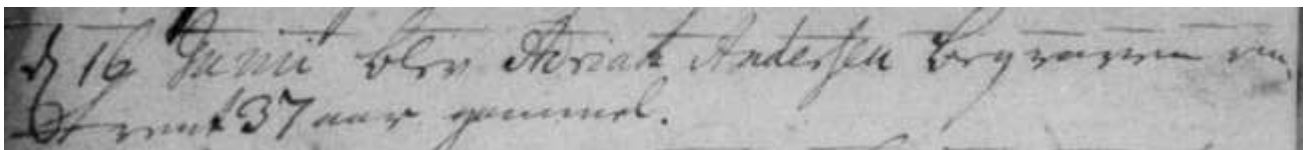 d 16 Junii blev Adriah Andersen begraven om,
trent 37 aar gammel.